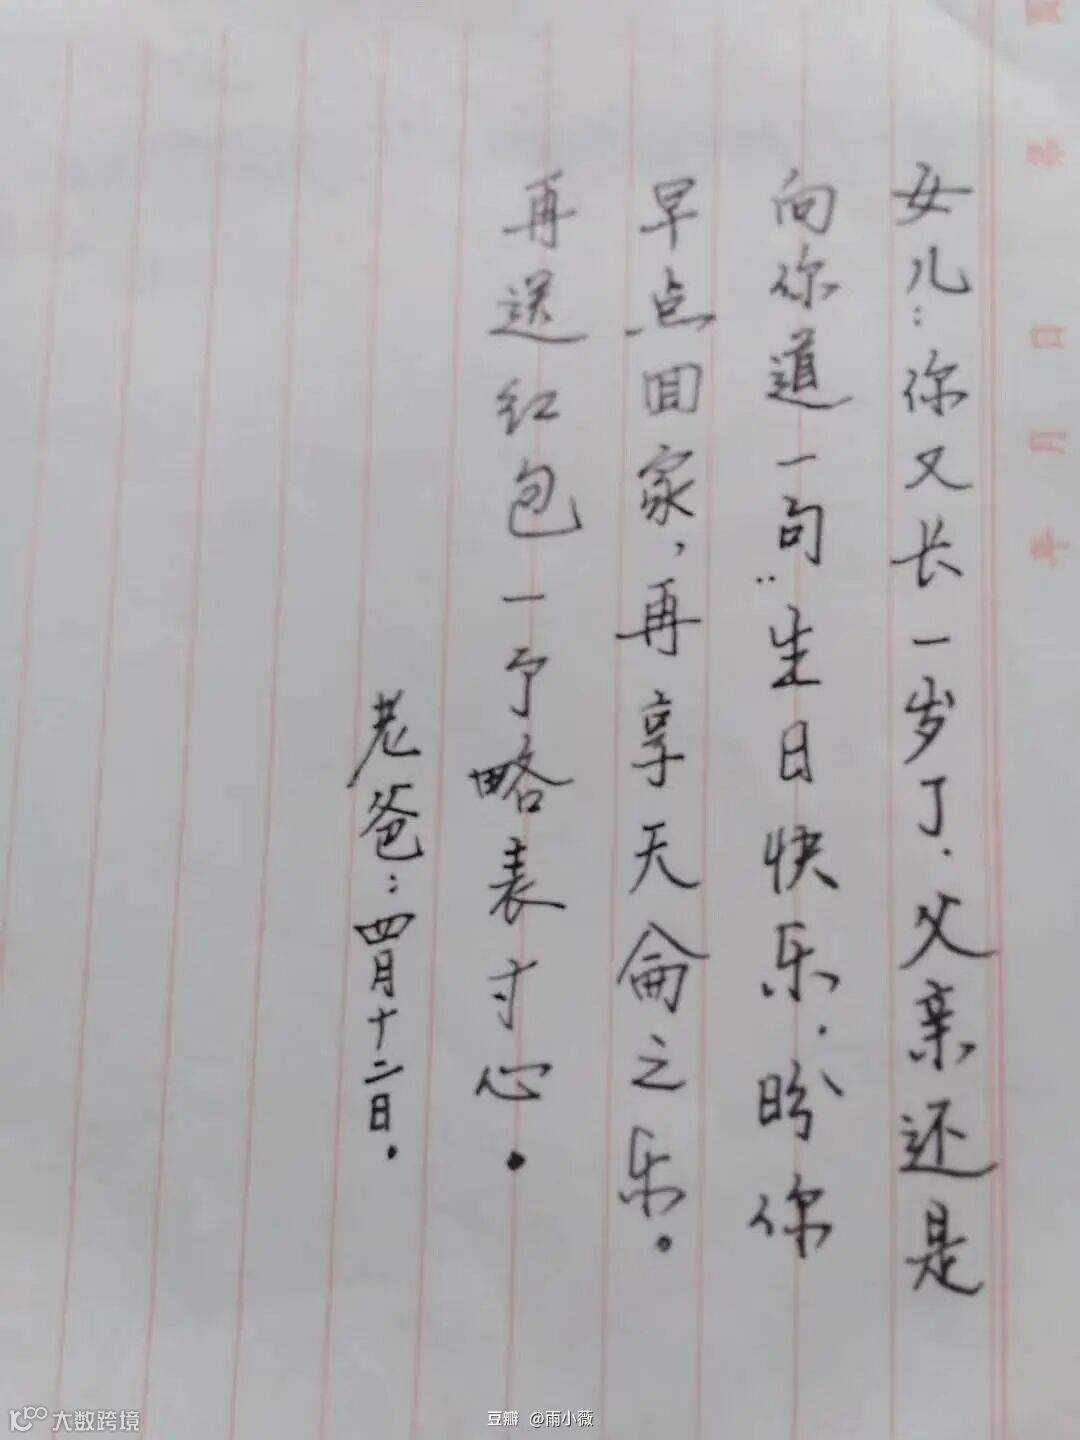 女儿：你又长一岁了．父亲还是
向你道一句：生日快乐．盼你
早点回家，再享天侖之乐。
再送红包一予略表寸心。
老爸：四月十二日。
年 月 日
大数跨境
豆瓣 @雨小薇